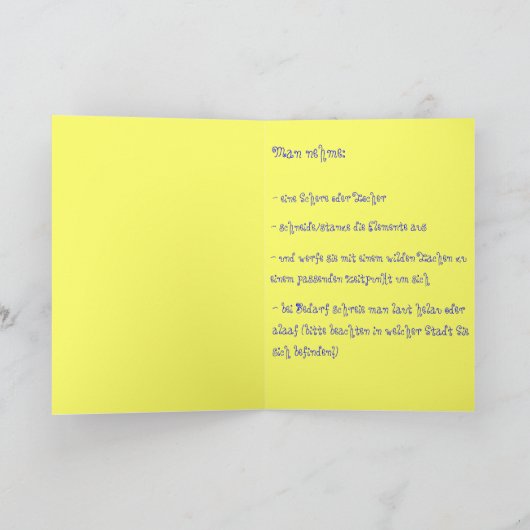 Man nehme:
- eine Schere oder Locher
- schneide/stanze die Elemente aus
- und werfe sie mit einem wilden Lachen zu
einem passenden Zeitpunkt um sich
- bei Bedarf schreie man laut helau oder
alaaf (bitte beachten in welcher Stadt Sie
sich befinden!)